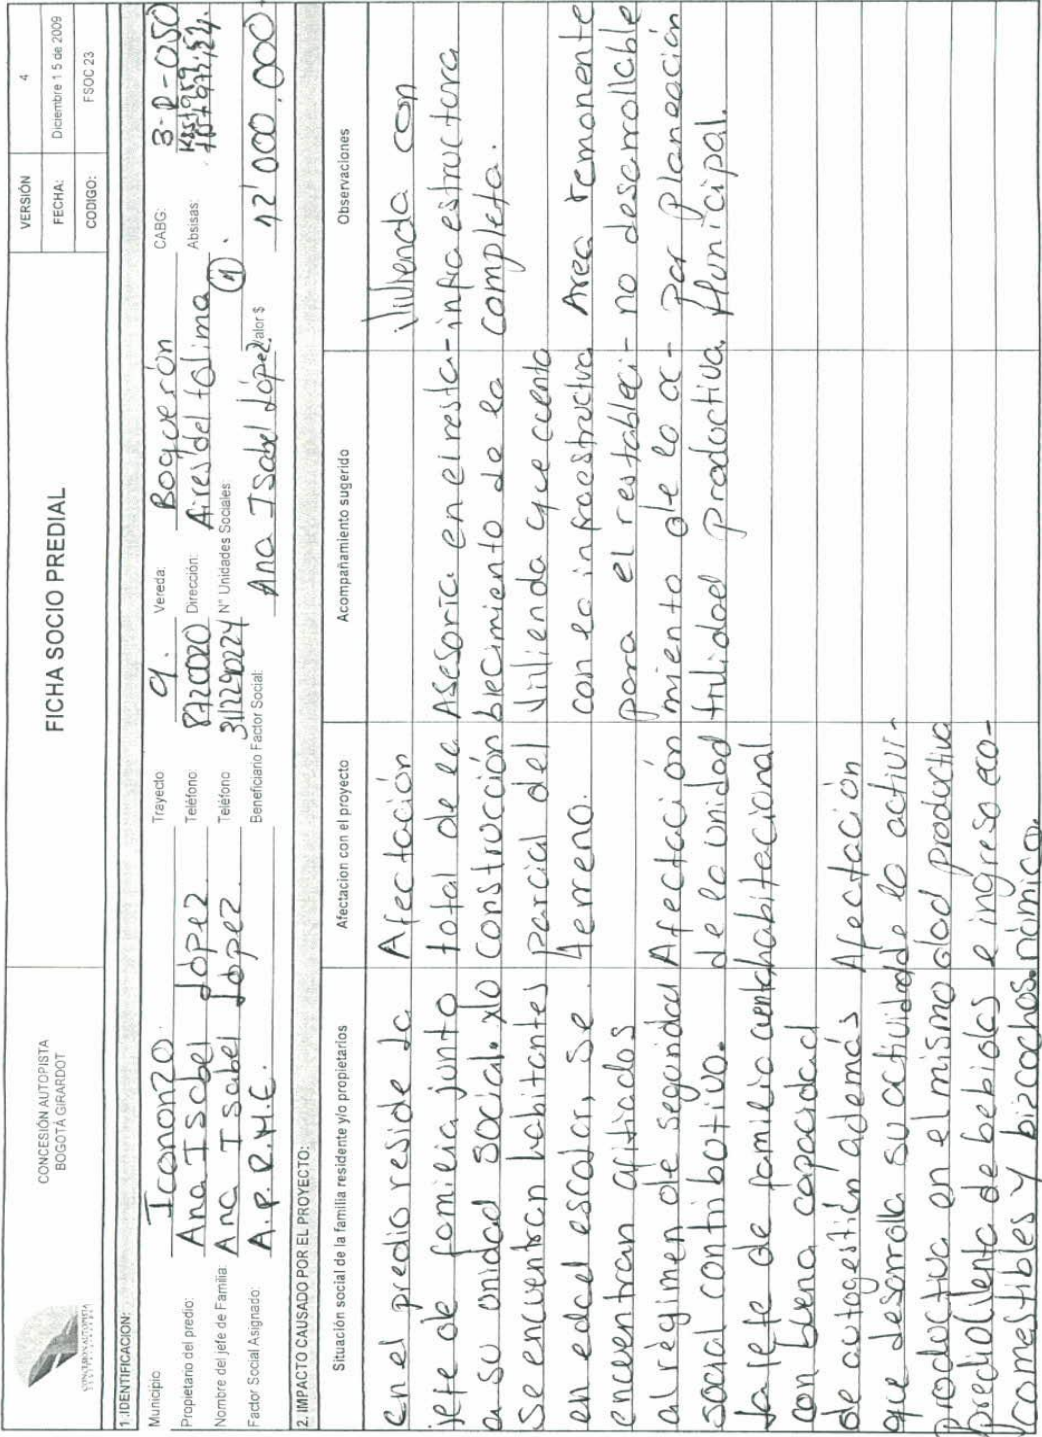 CONCESIÓN AUTOPISTA
BOGOTÁ GIRARDOT
FICHA SOCIO PREDIAL
VERSIÓN 4
FECHA: Diciembre 1 5 de 2009
CODIGO: FSOC 23
1.IDENTIFICACION:
Municipio Iconozo. Trayecto 9. Vereda: Boquerón CABG: 3-D-050
Propietario del predio: Ana Isabel López Teléfono 8720020 Dirección: Aires del tolima Absisas
Nombre del jefe de Familia Ana Isabel López Teléfono N° Unidades Sociales (1).
Factor Social Asignado: A.P.R.M.E. Beneficiario Factor Social: Ana Isabel López Valor $ 12'000.000
2. IMPACTO CAUSADO POR EL PROYECTO:
Situación social de la familia residente y/o propietarios
en el predio reside La
jefe de familia junto
a su unidad social.
Se encuentran habitantes
en edad escolar, se
encuentran afiliados
al règimen de seguridad
social contributivo.
La jefe de familia cuenta
con buena capacidad
de autogestión además
que desarrolla su actividad
productiva en el mismo
predio(venta de bebidas
comestibles y bizcochos.
Afectacion con el proyecto
Afectación
total de la
construcción
parcial del
terreno.
Afectación
de la unidad
habitacional
Afectación
de la activi-
dad productiva
e ingreso eco-
nómico.
Acompañamiento sugerido
Asesoría en el resta-
blecimiento de la
Vivienda que cuenta
con la infraestructura
para el restableci-
miento de la ac-
tividad productiva.
Observaciones
Vivienda con
infraestructura
completa.
Area remanente
no desarrollable
por planeación
Municipal.